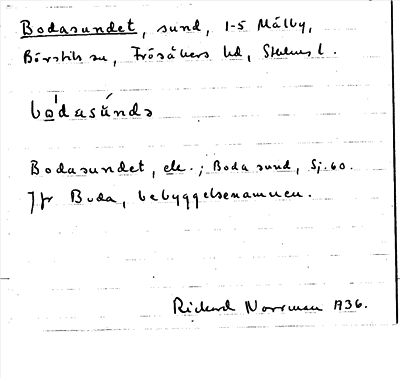 Bodasundet, sund, 1-5 Mälby,
Börstils sn, Frösåkers hd, Sthlms l.
bo̲'dasúndə
Bodasundet, ek.; Boda sund, Sj. 60.
Jfr Boda, bebyggelsenamnen.
Rickard Norrman 1936.